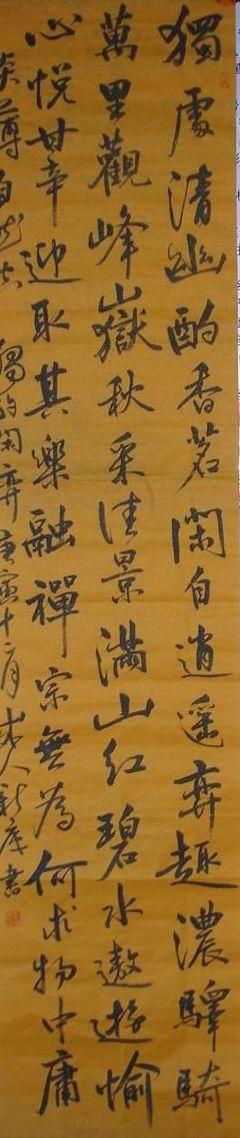 獨處清幽酌香茗閑自逍遥弈趣濃驛騎
萬里觀峰山嶽秋采佳景滿山紅碧水遨遊愉
心悅甘幸迎取其樂融禪宗無為何求物中庸
自 獨酌閑弈 庚寅十二月 人 書